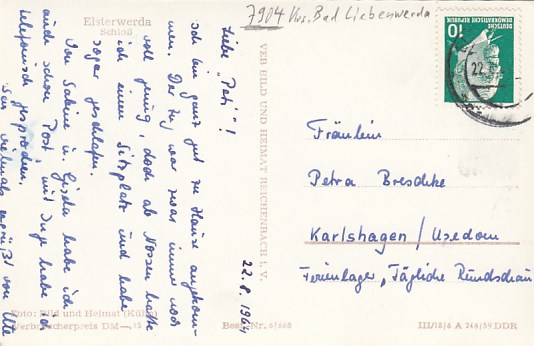 7904 Krs. Bad Liebenwerda
Elsterwerda
Schloß
22.8.1964
Liebe "Peti"!
Ich bin ganz gut zu Hause angekom-
men. Der Zug war zwar immer noch
voll genug, doch ab Nossen hatte
ich einen Sitzplatz und habe
sogar geschlafen.
Von Sabine u. Gisela habe ich
auch schon Post, mit Inge habe ich
telefonisch gesprochen.
Sei vielmals gegrüßt von Ute
VEB BILD UND HEIMAT REICHENBACH i. V.
DEUTSCHE
DEMOKRATISCHE REPUBLIK
10
22.8
Fräulein
Petra Breschke
Karlshagen / Usedom
Ferienlager "Tägliche Rundschau
Foto: Bild und Heimat
Verbraucherpreis DM -,15
Best.-Nr. 6/668
III/18/6 A 246/59 DDR